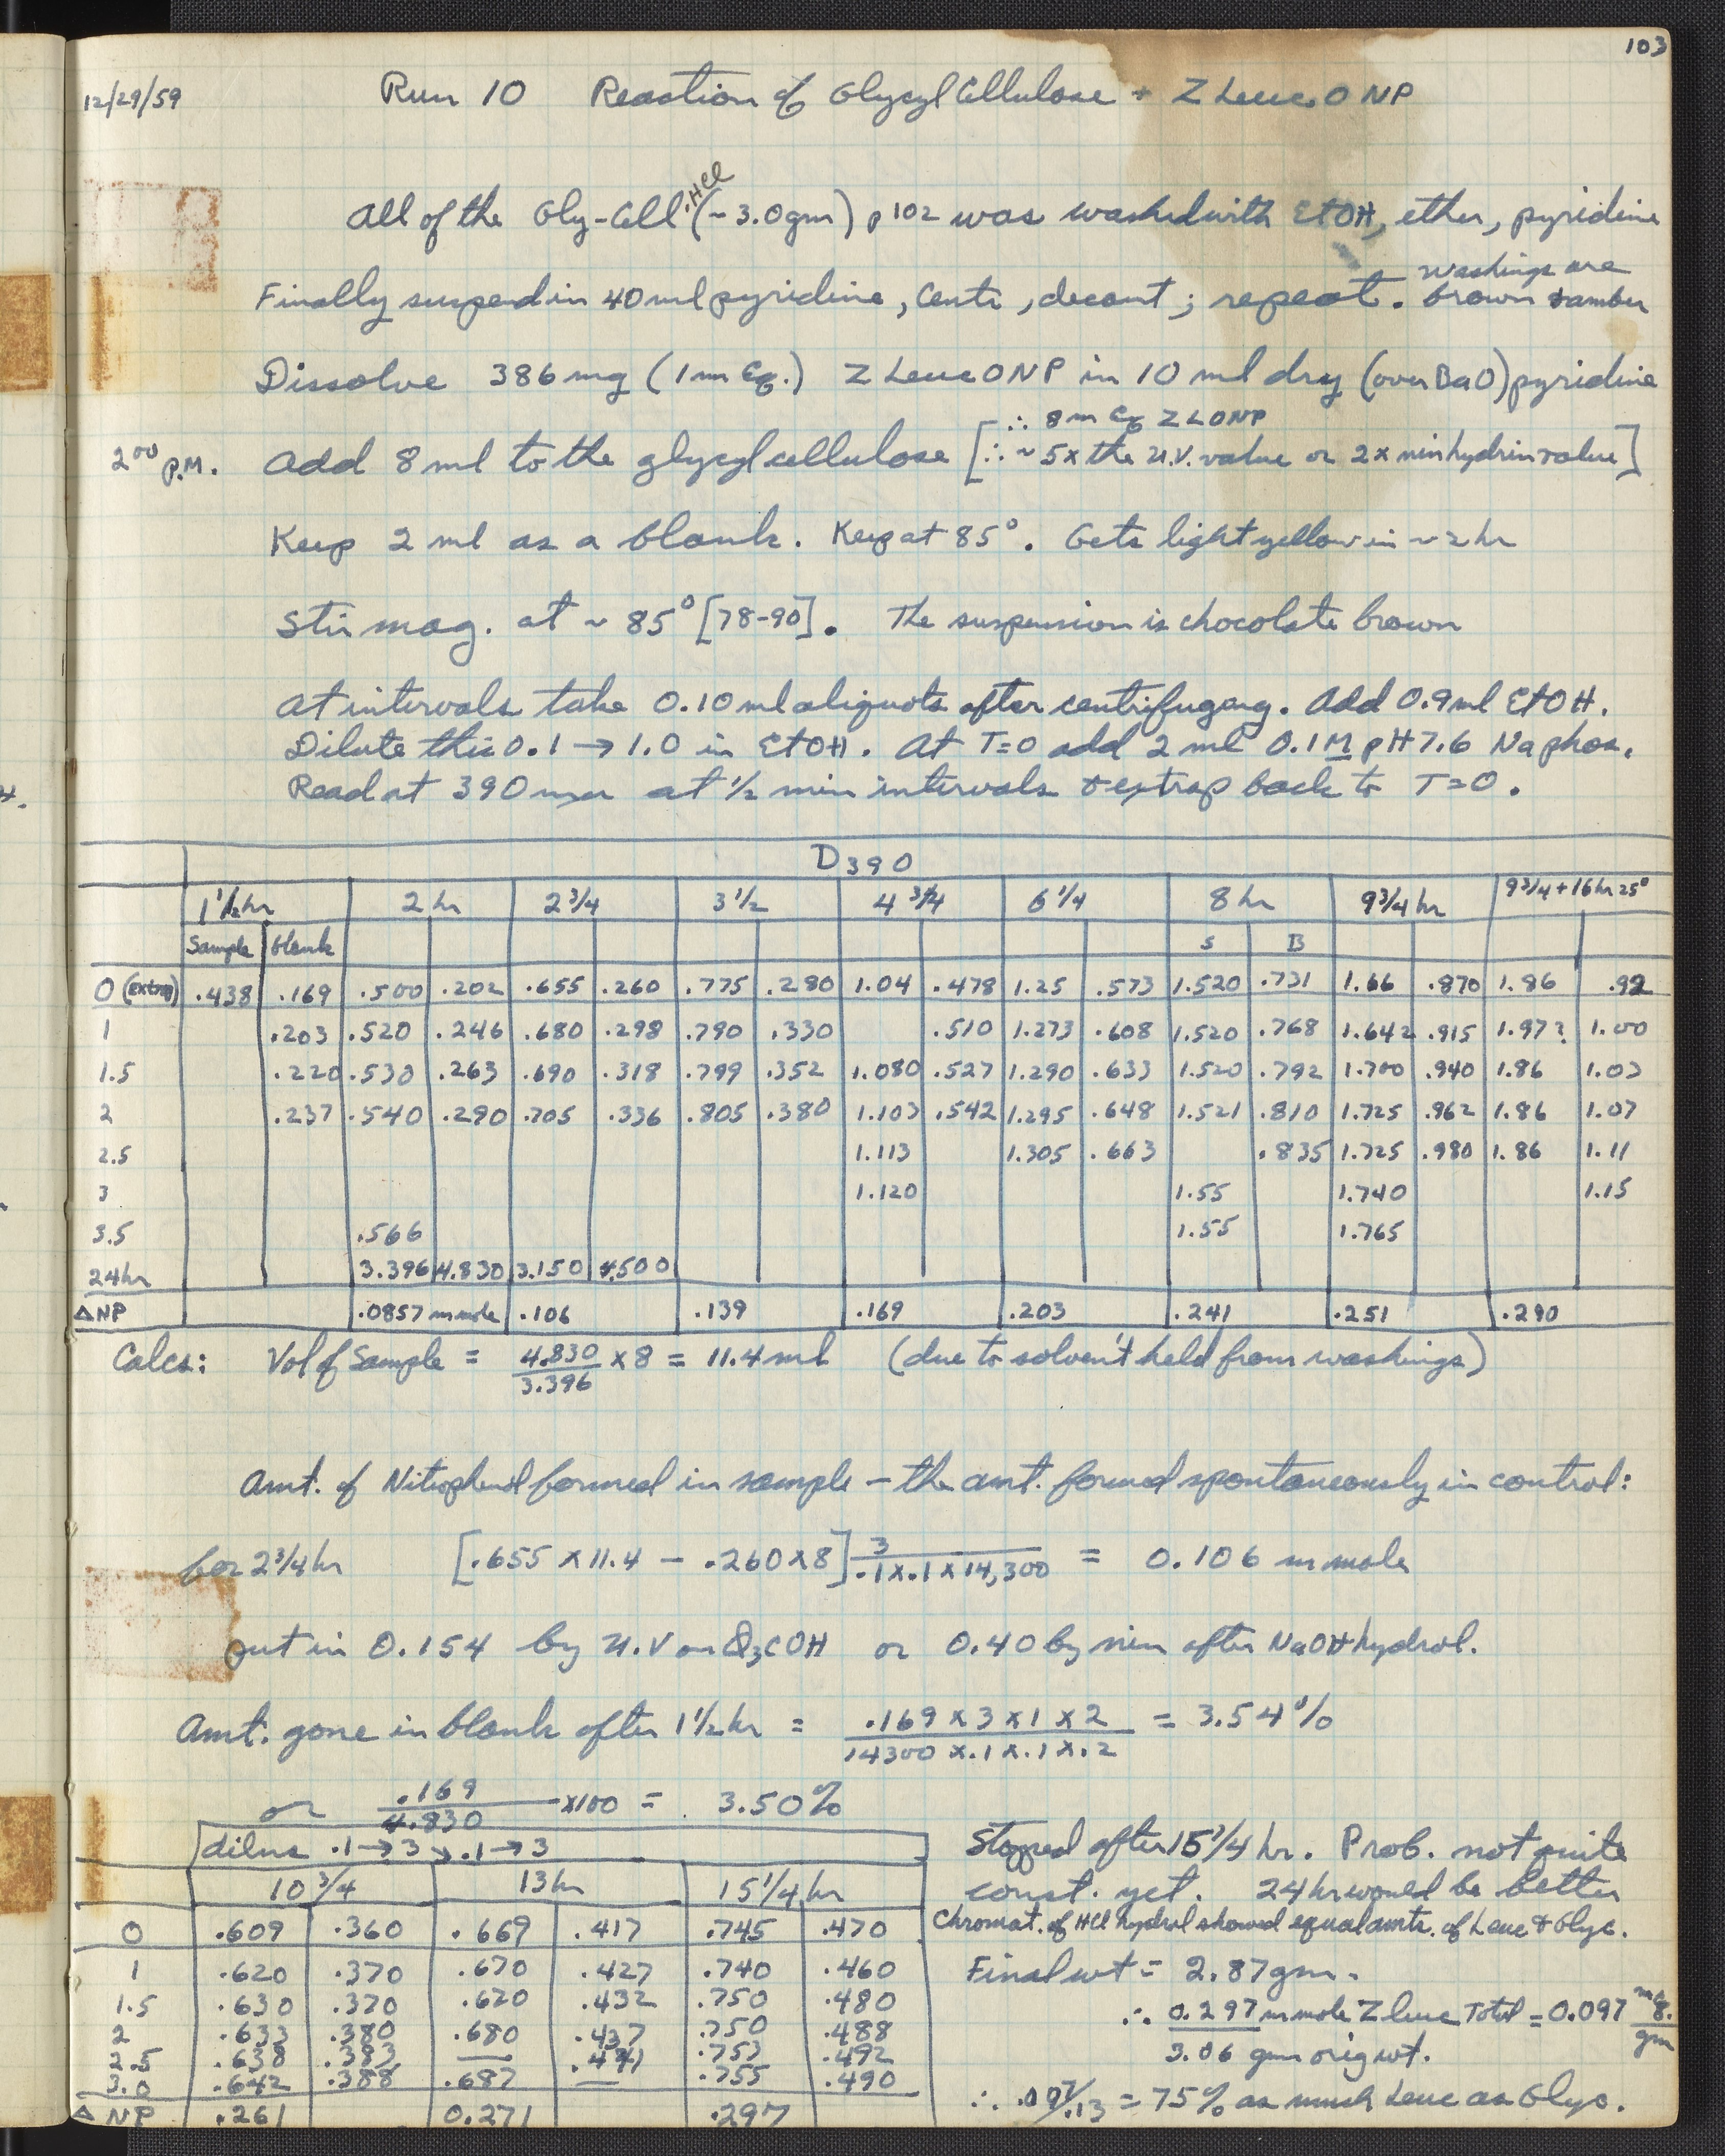 103
12/29/59 Run 10 Reaction of Glycyl Cellulose + Z Leuc. O NP
All of the Gly-Cell·HCl (~3.0gm) p102 was washed with EtOH, ether, pyridine
Finally suspend in 40 ml pyridine, Cent, decant; repeat. washings are brown & amber
Dissolve 386 mg (1 m Eq.) Z Leuc ONP in 10 ml dry (over BaO) pyridine
∴ 8 m Eq ZLONP
2⁰⁰ P.M. Add 8 ml to the glycyl cellulose [∴ ~5x the U.V. value or 2x ninhydrin value]
Keep 2 ml as a blank. Keep at 85°. Gets light yellow in ~2 hr
Stir mag. at ~ 85° [78-90]. The suspension is chocolate brown
At intervals take 0.10 ml aliquots after centrifugang. Add 0.9 ml EtOH.
Dilute this 0.1 → 1.0 in EtOH. At T=0 add 2 ml 0.1 M pH 7.6 Na phos.
Read at 390 mµ at ½ min intervals & extrap back to T=0.
D390
1½ hr 2 hr 2¾ 3½ 4¾ 6¼ 8 hr 9¾ hr 9¾ + 16 hr 25°
Sample blank S B
0 (extrap) .438 .169 .500 .202 .655 .260 .775 .280 1.04 .478 1.25 .573 1.520 .731 1.66 .870 1.86 .92
1 .203 .520 .246 .680 .298 .790 .330 .510 1.273 .608 1.520 .768 1.642 .915 1.97? 1.00
1.5 .220 .530 .263 .690 .318 .799 .352 1.080 .527 1.290 .633 1.520 .792 1.700 .940 1.86 1.03
2 .237 .540 .290 .705 .336 .805 .380 1.103 .542 1.295 .648 1.521 .810 1.725 .962 1.86 1.07
2.5 1.113 1.305 .663 .835 1.725 .980 1.86 1.11
3 1.120 1.55 1.740 1.15
3.5 .566 1.55 1.765
24hr 3.396 4.830 3.150 4.500
Δ NP .0857 m mole .106 .139 .169 .203 .241 .251 .290
Calcs: Vol of Sample = 4.830/3.396 x 8 = 11.4 ml (due to solvent held from washings)
Amt. of Nitrophenol formed in sample – the amt. formed spontaneously in control:
for 2¾ hr [.655 x 11.4 – .260 x 8] 3/.1 x .1 x 14,300 = 0.106 m mole
put in 0.154 by U.V on Ø₃COH or 0.40 by nin after NaOH hydrol.
Amt. gone in blank after 1½ hr = .169 x 3 x 1 x 2/14300 x .1 x .1 x .2 = 3.54%
or .169/4.830 x100 = 3.50%
dilns .1→3, .1→3
10¾ 13hr 15¼ hr
0 .609 .360 .669 .417 .745 .470
1 .620 .370 .670 .427 .740 .460
1.5 .630 .370 .620 .432 .750 .480
2 .633 .380 .680 .437 .750 .488
2.5 .638 .383 — .441 .753 .492
3.0 .642 .388 .687 — .755 .490
Δ NP .261 0.271 .297
Stopped after 15¼ hr. Prob. not quite
const. yet. 24 hr would be better
Chromat. of HCl hydrol showed equal amts. of Leuc & Glyc.
Final wt = 2.87 gm.
∴ 0.297 m mole Z leuc Total/3.06 gm orig wt. = 0.097 /gm
∴ .097/.13 = 75% as much Leuc as Glyc.